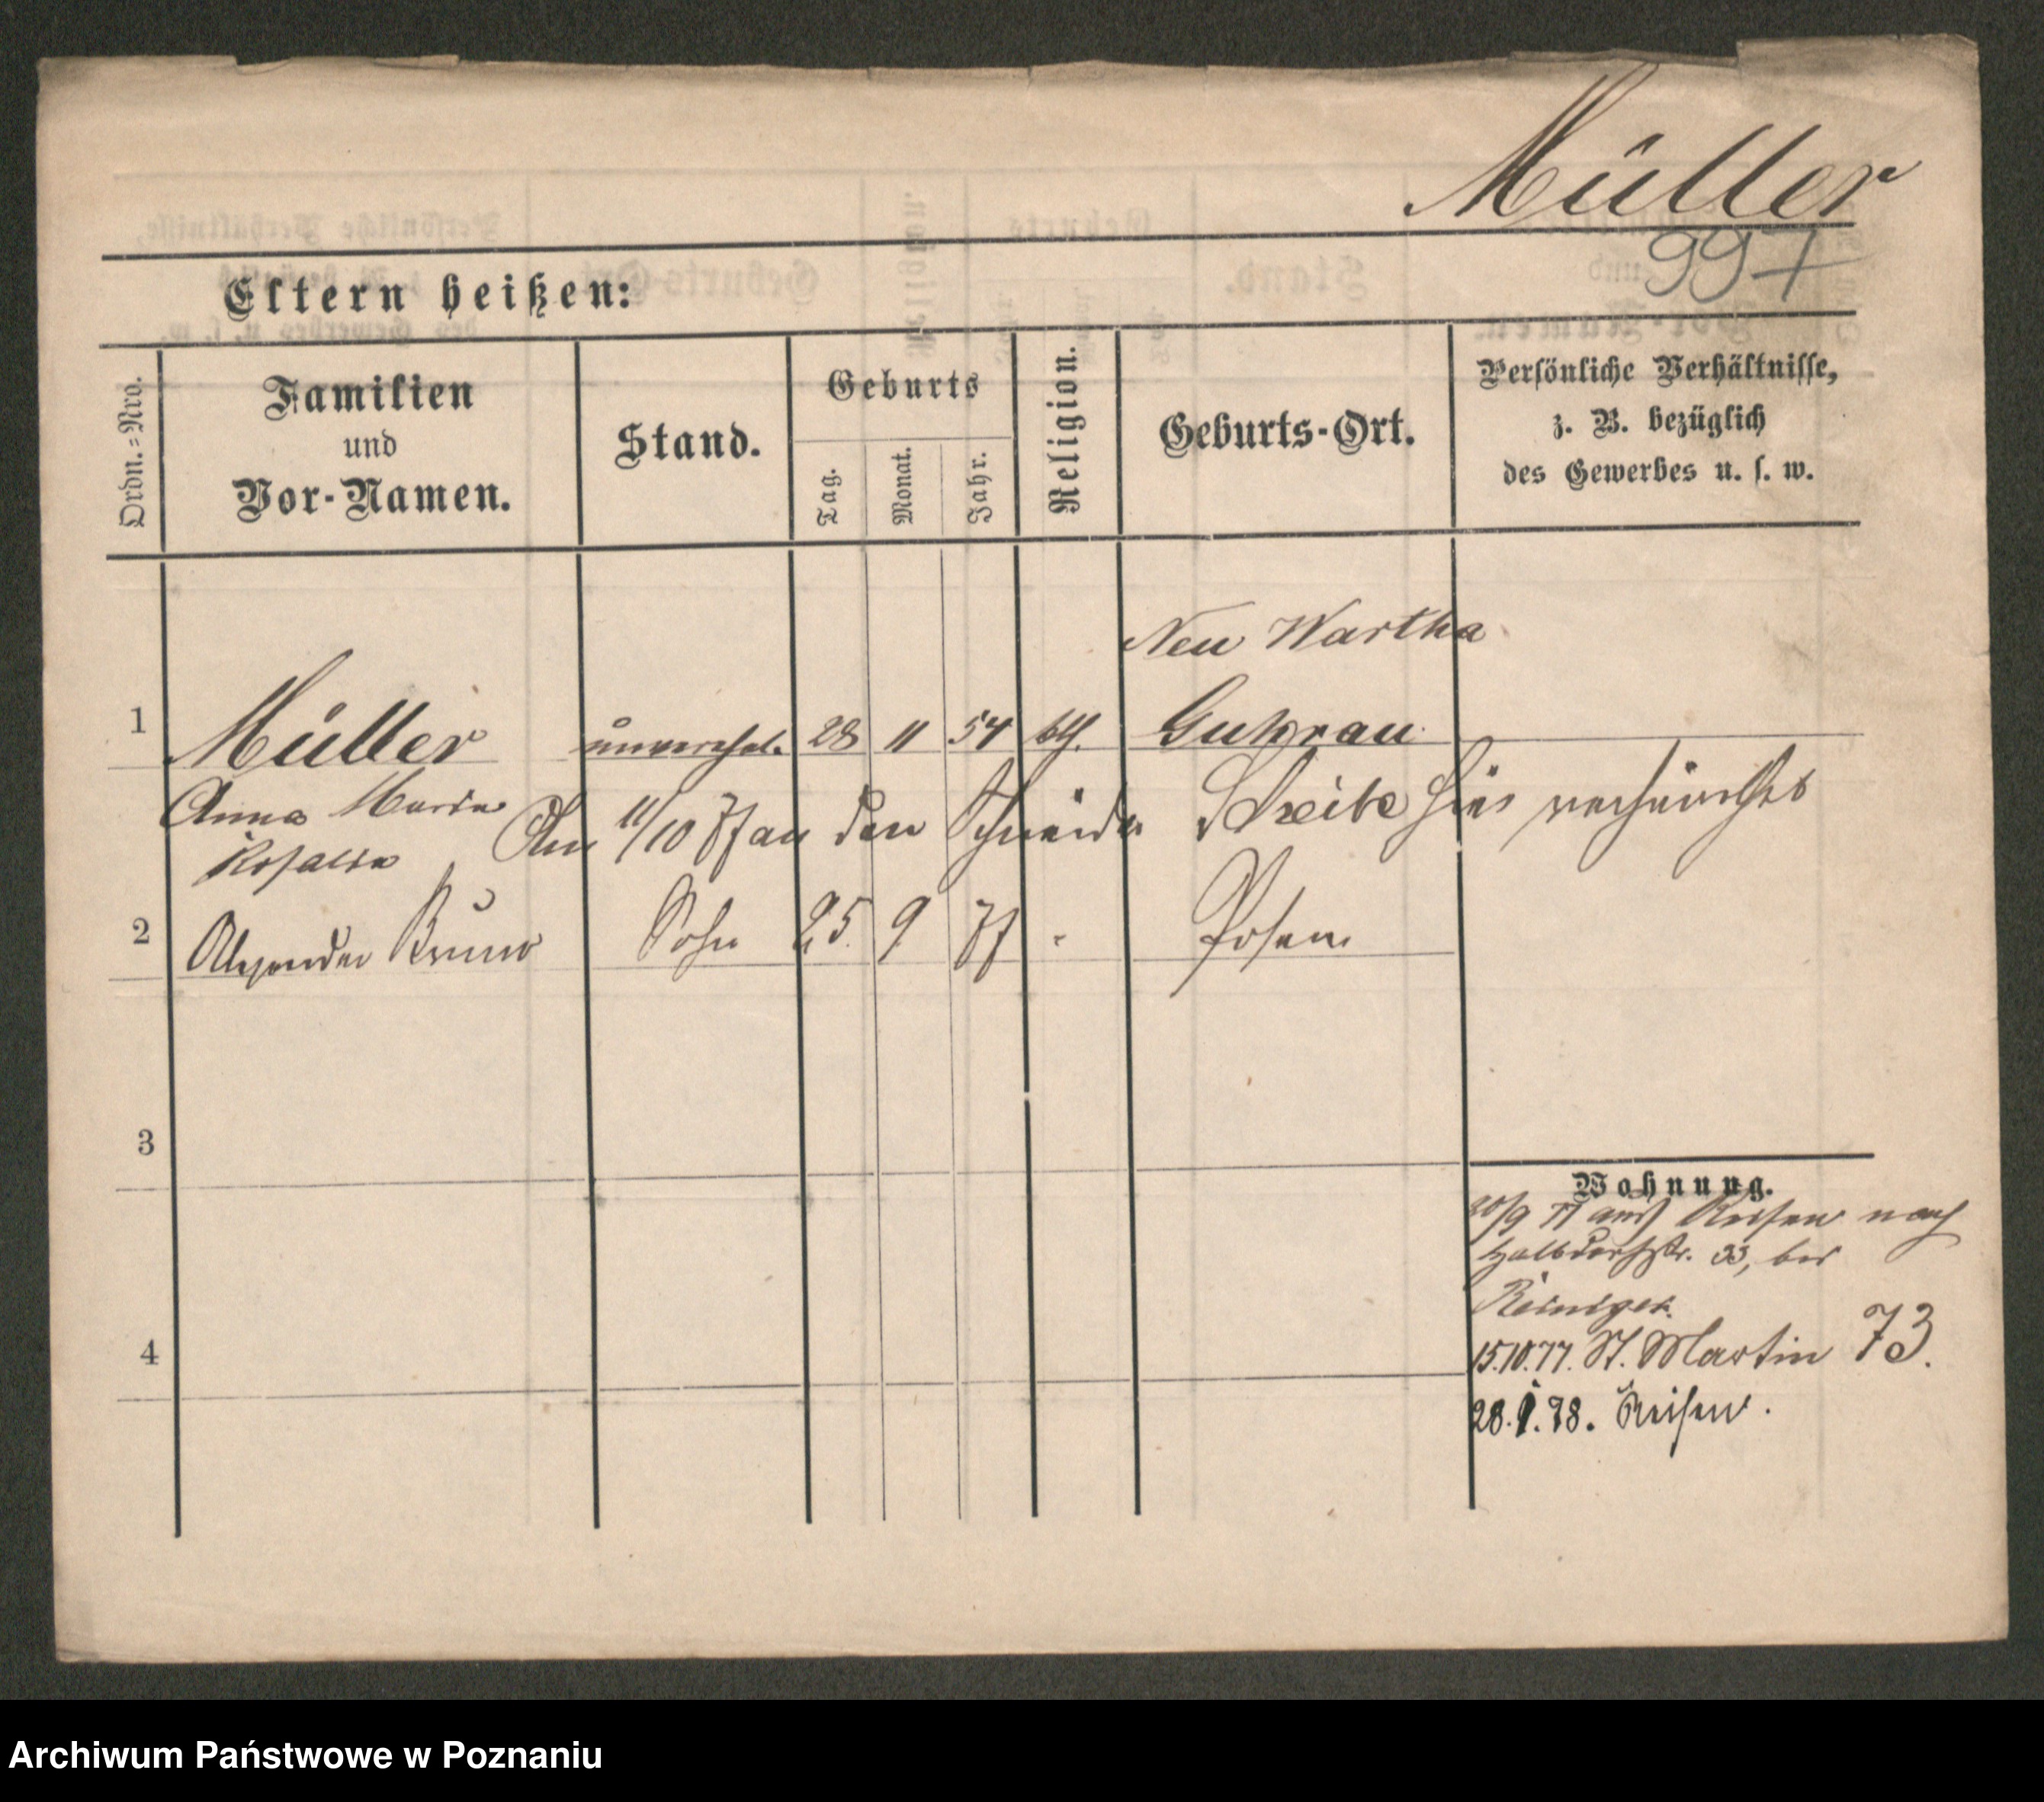 Müller
997
Eltern heißen:
Ordn.=Nro.
Familien
und
Vor-Namen.
Stand.
Geburts
Tag.
Monat.
Jahr.
Religion.
Geburts-Ort.
Persönliche Verhältnisse,
z. B. bezüglich
des Gewerbes u. s. w.
Neu Wartha
1 Müller unverehel. 28 11 54 kth. Guhrau
Anna Maria
Rosalia
Am 11/10 77 an den Schneider Scheibe hier verheirathet
2 Alexander Bruno Sohn 25. 9 77 Posen
3
4
Wohnung.
20/9 77 aus Reisen nach
Halbdorfstr. 33, bei
Reiniger.
15.10.77. St. Martin 73.
28.1.78. Reisen.
Archiwum Państwowe w Poznaniu